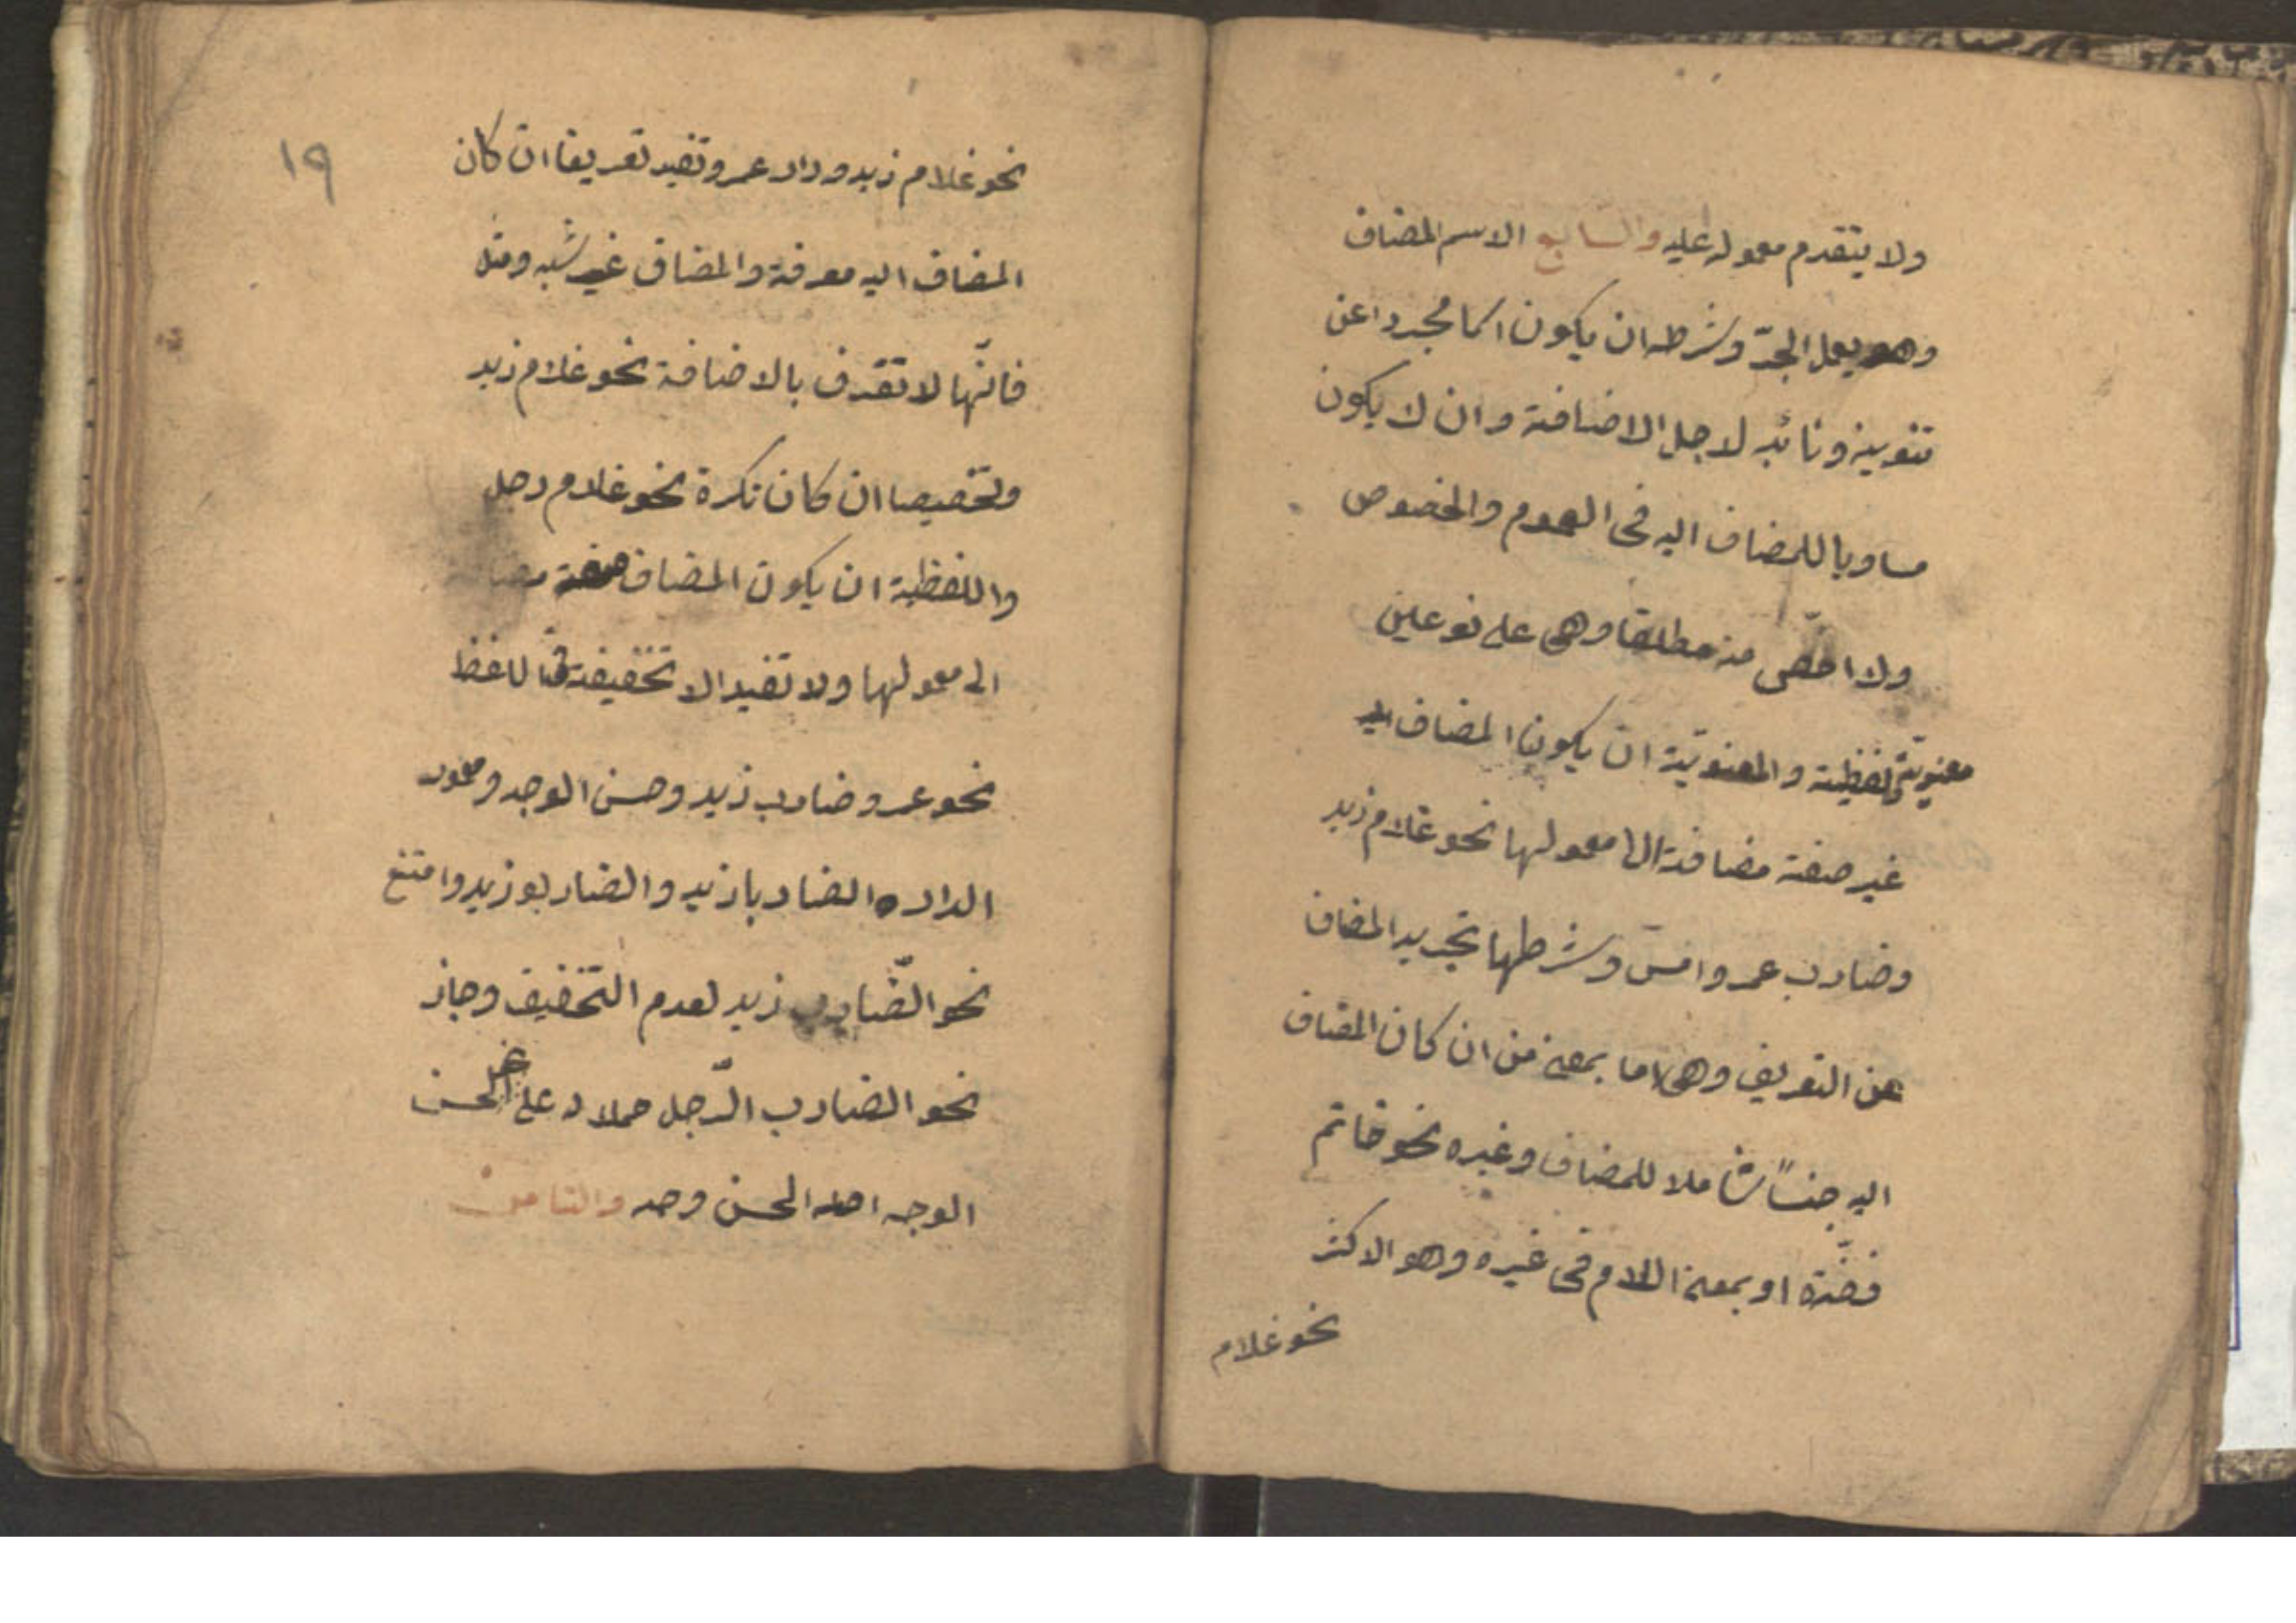 ولا يتقدم معموله عليه والسابع الاسم المضاف
وهو يعمل الجرّ وشرطه ان يكون اسما مجردا عن
تنوينه ونائبه لاجل الاضافة وان لا يكون
مساويا للمضاف اليه فى العموم والخصوص
ولا اخصّ منه مطلقا وهى على نوعين
معنويّة ولفظية والمعنويّة ان يكون المضاف اليه
غير صفة مضافة الى معمولها نحو غلام زيد
وضارب عمرو امس وشرطها تجريد المضاف
عن التعريف وهى اما بمعنى من ان كان المضاف
اليه جنساً شاملا للمضاف وغيره نحو خاتم
فضّة او بمعنى اللام فى غيره وهو الاكثر
نحو غلام
١٩
نحو غلام زيد ودار عمرو وتفيد تعريفا ان كان
المضاف اليه معرفة والمضاف غير شبه ومثل
فانّها لا تعرف بالاضافة نحو غلام زيد
وتخصيصا ان كان نكرة نحو غلام رجل
واللفظية ان يكون المضاف صفة
الى معمولها ولا تفيد الا تخفيفة فى اللفظ
نحو عمرو ضارب زيد وحسن الوجه ومعمور
الدار والضاربا زيد والضاربو زيد وامتنع
نحو الضّارب زيد لعدم التّخفيف وجاز
نحو الضارب الرّجل حملا له على الحسن
الوجه اصله الحسن وجه والثامن